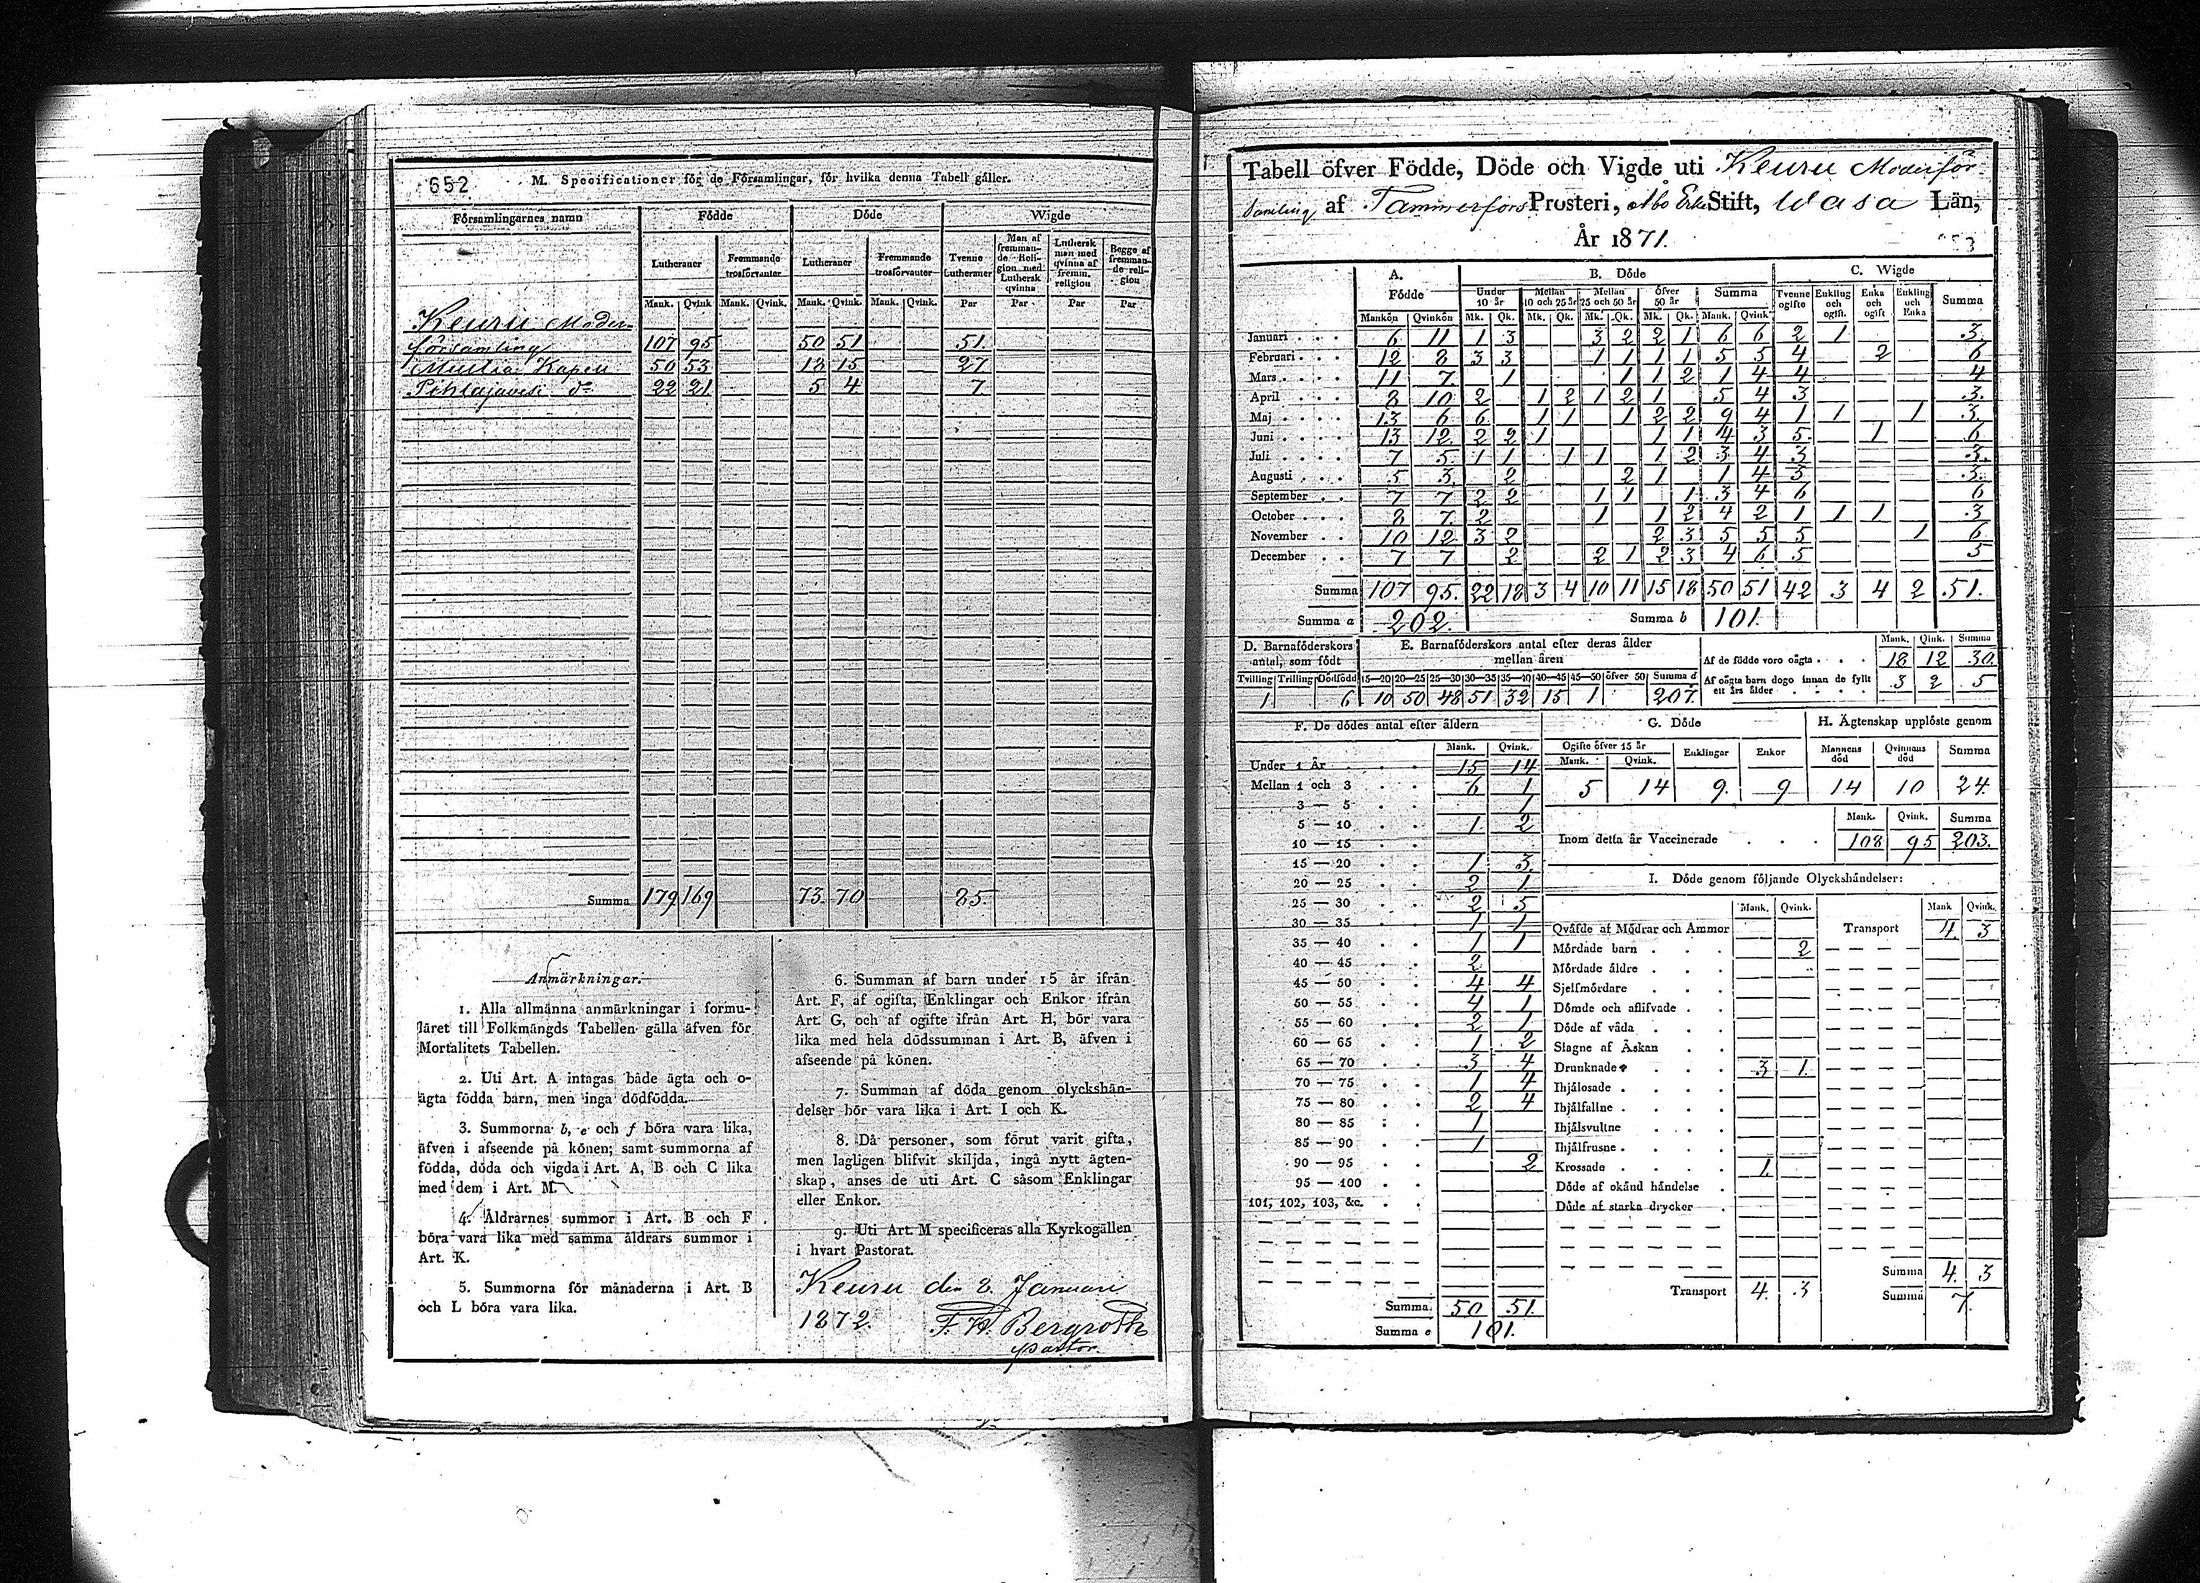 652
M. Specificationer för de Församlingar, för hvilka denna Tabell gäller.
Församlingarnes namn Födde Döde Wigde
Lutheraner Fremmande trosförvanter Lutheraner Fremmande trosförvanter Tvenne Lutheraner Man af fremmande Religion med Luthersk qvinna Luthersk man med qvinna af fremm. religion Begge af fremmande religion
Mank. Qvink Mank. Qvink. Mank. Qvink. Mank. Qvink. Par Par Par Par
Keuru Moder-
församling 107 95 50 51 51.
Multia Kapell 50 53 18 15 27
Pihlajavesi do 22 21 5 4 7.
Summa 179 169 73. 70 85.
Anmärkningar.
1. Alla allmänna anmärkningar i formu-
läret till Folkmängds Tabellen gälla äfven för
Mortalitets Tabellen.
2. Uti Art. A intagas både ägta och o-
ägta födda barn, men inga dödfödda.
3. Summorna b, e och f böra vara lika,
äfven i afseende på könen; samt summorna af
födda, döda och vigda i Art. A, B och C lika
med dem i Art. M.
4. Åldrarnes summor i Art. B och F
böra vara lika med samma åldrars summor i
Art. K.
5. Summorna för månaderna i Art. B
och L böra vara lika.
6. Summan af barn under 15 år ifrån
Art. F, af ogifta, Enklingar och Enkor ifrån
Art. G, och af ogifte ifrån Art. H, bör vara
lika med hela dödssumman i Art. B, äfven i
afseende på könen.
7. Summan af döda genom olyckshän-
delser bör vara lika i Art. I och K.
8. Då personer, som förut varit gifta,
men lagligen blifvit skiljda, ingå nytt ägten-
skap, anses de uti Art. C såsom Enklingar
eller Enkor.
9. Uti Art. M specificeras alla Kyrkogällen
i hvart Pastorat.
Keuru den 2. Januari
1872. F. W. Bergroth
pastor.
Tabell öfver Födde, Döde och Vigde uti Keuru Moderför
samling af Tammerfors Prosteri, Åbo Erke Stift, Wasa Län,
År 1871.
A. Födde B. Döde C. Wigde
Under 10 år Mellan 10 och 25 år Mellan 25 och 50 år öfver 50 år Summa Tvenne ogifte Enkling och ogift. Enka och ogift Enkling och Enka Summa
Mankön Qvinkön Mk. Qk. Mk. Qk. Mk. Qk. Mk. Qk. Mank. Qvink
Januari 6 11 1 3 3 2 2 1 6 6 2 1 3.
Februari 12 8 3 3 1 1 1 1 5 5 4 2 6
Mars 11 7. 1 1 1 2 1 4 4 4
April 8 10 2 1 2 1 2 1 5 4 3 3.
Maj 13 6 6 1 1 1 2 2 9 4 1 1 1 3.
Juni 13 12 2 2 1 1 1 4 3 5. 1 6
Juli 7 5. 1 1 1 1 1 2 3 4 3 3.
Augusti 5 3. 2 2 1 1 4 3 3.
September 7 7 2 2 1 1 1 3 4 6 6
October 8 7. 2 1 1 2 4 2 1 1 1 3
November 10 12 3 2 2 3 5 5 5 1 6
December 7 7 2 2 1 2 3 4 6 5 5
Summa 107 95. 22 18 3 4 10 11 15 18 50 51 42 3 4 2 51.
Summa a 202. Summa b 101.
D. Barnaföderskors antal, som födt E. Barnaföderskors antal efter deras ålder mellan åren Mank. Qink. Summa
Af de födde voro oägta 18 12 30.
Tvilling Trilling Dödfödd 15—20 20—25 25—30 30—35 35—40 40—45 45—50 öfver 50 Summa d
Af oägta barn dogo innan de fyllt ett års ålder 3 2 5
1 6 10 50 48 51 32 15 1 207.
F. De dödes antal efter åldern G. Döde H. Ägtenskap upplöste genom
Mank. Qvink. Ogifte öfver 15 år Enklingar Enkor Mannens död Qvinnans död Summa
Mank. Qvink.
5 14 9. 9 14 10 24.
Under 1 År 15 14
Mellan 1 och 3 6 1
3 — 5 1
5 — 10 1. 2
10 — 15
15 — 20 1 3.
20 — 25 2 1.
25 — 30 2 5
30 — 35 1 1
35 — 40 1 1
40 — 45 2
45 — 50 4 4
50 — 55 4 1
55 — 60 2 1
60 — 65 1 2
65 — 70 3 4
70 — 75 1 4
75 — 80 2 4
80 — 85 1
85 — 90 1
90 — 95 2
95 — 100
101, 102, 103, &c.
Summa 50 51.
Summa e 101.
Mank. Qvink. Summa
Inom detta år Vaccinerade 108 95 203.
I. Döde genom följande Olyckshändelser:
Mank. Qvink. Mank Qvink.
Qväfde af Mödrar och Ammor Transport 4. 3
Mördade barn 2
Mördade äldre
Sjelfmördare
Dömde och aflifvade
Döde af våda
Slagne af Åskan
Drunknade 3 1.
Ihjälosade
Ihjälfallne
Ihjälsvultne
Ihjälfrusne
Krossade 1.
Döde af okänd händelse
Döde af starka drycker
Summa 4. 3
Transport 4. 3 Summa 7.